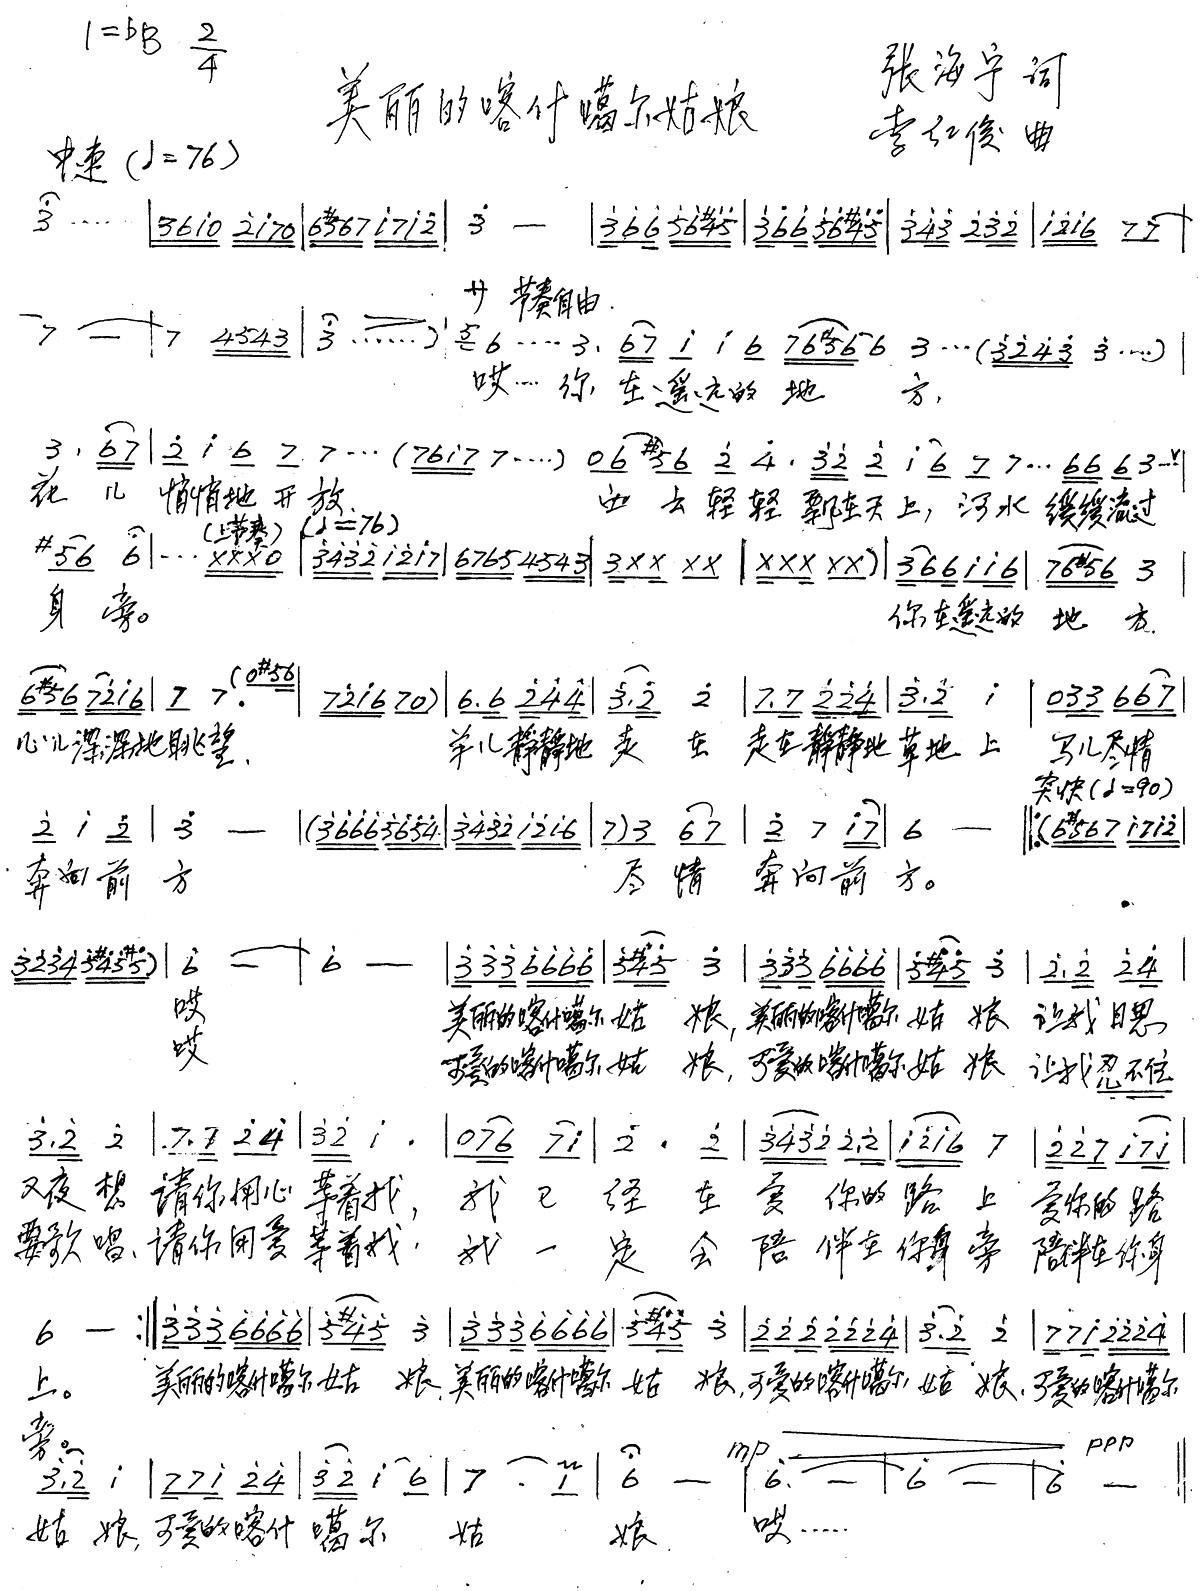 1=bB 2/4
美丽的喀什噶尔姑娘
张海宁 词
李红俊 曲
中速 (♩=76)
3 ······ |3610 2170|6#567 1712| 3 — |366 56#45|366 56#45|343 232|1216 77|
7 — |7 4543|3 ······) 5 6 ···· 3. 67 1 1 6 76#566 3 ···(3243 3 ····)|
廾 节奏自由.
哎···· 你 在遥远的 地 方,
3. 67|2 1 6 7 7 ···(7617 7 ····) 06#56 2 4. 32 2 1 6 7 7··· 66 63··|
花 儿 悄悄地 开 放. 云 轻轻 飘在天上, 河水 缓缓流过
#56 6|··· XXX0|3432 1217|6765 4543|3XX XX|XXX XX)|366 116|76#56 3|
(上节奏) (♩=76)
身 旁。 你在遥远的 地 方.
6#56 7216|7 7.(0#56|7216 70)|6.6 244|3.2 2|7.7 224|3.2 1|033 667|
心儿深深地眺望. 羊儿静静地 走 在 走在静静地 草地 上 马儿尽情
2 1 2|3 —|(3666 3654|3432 1216|7)3 67|2 7 17|6 —‖:(6#567 1712|
欢快(♩=90)
奔向 前 方 尽 情 奔向前 方。
3234 3#45#5)|6 —|6 —|333 6666|3#45 3|333 6666|5#45 3|2.2 24|
哎 美丽的喀什噶尔 姑 娘, 美丽的喀什噶尔 姑 娘 让我 日思
哎 可爱的喀什噶尔 姑 娘, 可爱的喀什噶尔 姑 娘 让我忍不住
3.2 2|7.7 24|32 1.|076 71|2. 2|3432 2.2|1216 7|227 171|
又夜 想 请你用心 等着我, 我 已 经 在 爱 你的 路 上 爱你的 路
要歌 唱、请你用爱 等着我, 我 一 定 会 陪 伴在 你身 旁 陪伴在你身
6 — :‖333 6666|3#45 3|333 6666|3#45 3|222 2224|3.2 2|771 2224|
上。 美丽的喀什噶尔 姑 娘, 美丽的喀什噶尔 姑 娘, 可爱的喀什噶尔 姑 娘, 可爱的喀什噶尔
旁。
3.2 1|771 24|32 1 6|7. 1|6 —|6. —|6 —|6 —‖
mp ppp
姑 娘, 可爱的喀什 噶尔 姑 娘 哎······